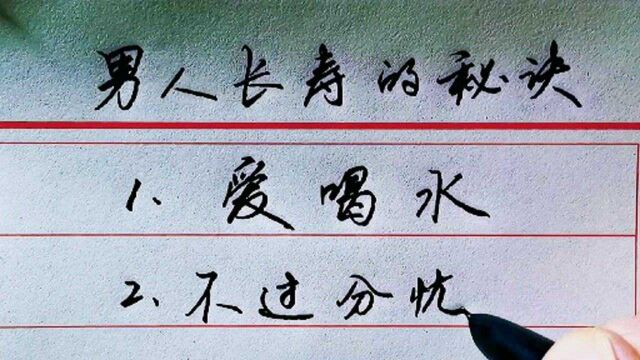 男人长寿的秘诀
1、爱喝水
2、不过分忧